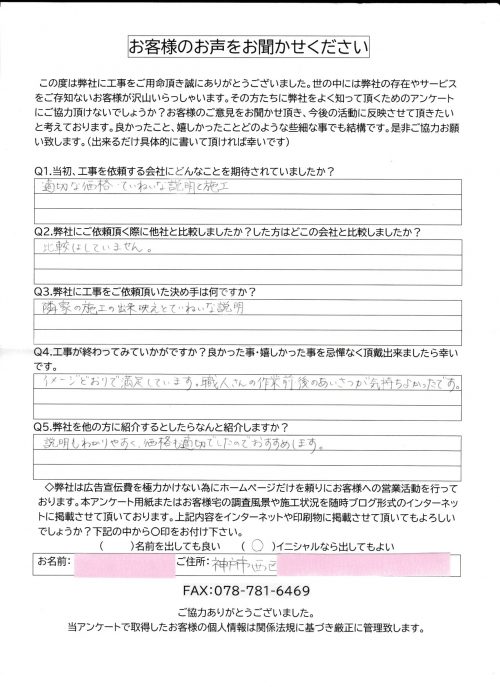 お客様のお声をお聞かせください
この度は弊社に工事をご用命頂き誠にありがとうございました。世の中には弊社の存在やサービス
をご存知ないお客様が沢山いらっしゃいます。その方たちに弊社をよく知って頂くためのアンケート
にご協力頂けないでしょうか?お客様のご意見をお聞かせ頂き、今後の活動に反映させて頂きたい
と考えております。良かったこと、嬉しかったことどのような些細な事でも結構です。是非ご協力お願
い致します。(出来るだけ具体的に書いて頂ければ幸いです)
Q1.当初、工事を依頼する会社にどんなことを期待されていましたか?
適切な価格・ていねいな説明と施工
Q2.弊社にご依頼頂く際に他社と比較しましたか?した方はどこの会社と比較しましたか?
比較はしていません。
Q3.弊社に工事をご依頼頂いた決め手は何ですか?
隣家の施工の出来映えとていねいな説明
Q4.工事が終わってみていかがですか?良かった事・嬉しかった事を忌憚なく頂戴出来ましたら幸い
です。
イメージどおりで満足しています。職人さんの作業前後のあいさつが気持ちよかったです。
Q5.弊社を他の方に紹介するとしたらなんと紹介しますか?
説明もわかりやすく、価格も適切でしたのでおすすめします。
◇弊社は広告宣伝費を極力かけない為にホームページだけを頼りにお客様への営業活動を行って
おります。本アンケート用紙またはお客様宅の調査風景や施工状況を随時ブログ形式のインターネッ
トに掲載させて頂いております。上記内容をインターネットや印刷物に掲載させて頂いてもよろしい
でしょうか?下記の中から○印をお付け下さい。
(　　)名前を出しても良い　(○)イニシャルなら出してもよい
お名前:　ご住所:神戸市西区
FAX:078-781-6469
ご協力ありがとうございました。
当アンケートで取得したお客様の個人情報は関係法規に基づき厳正に管理致します。